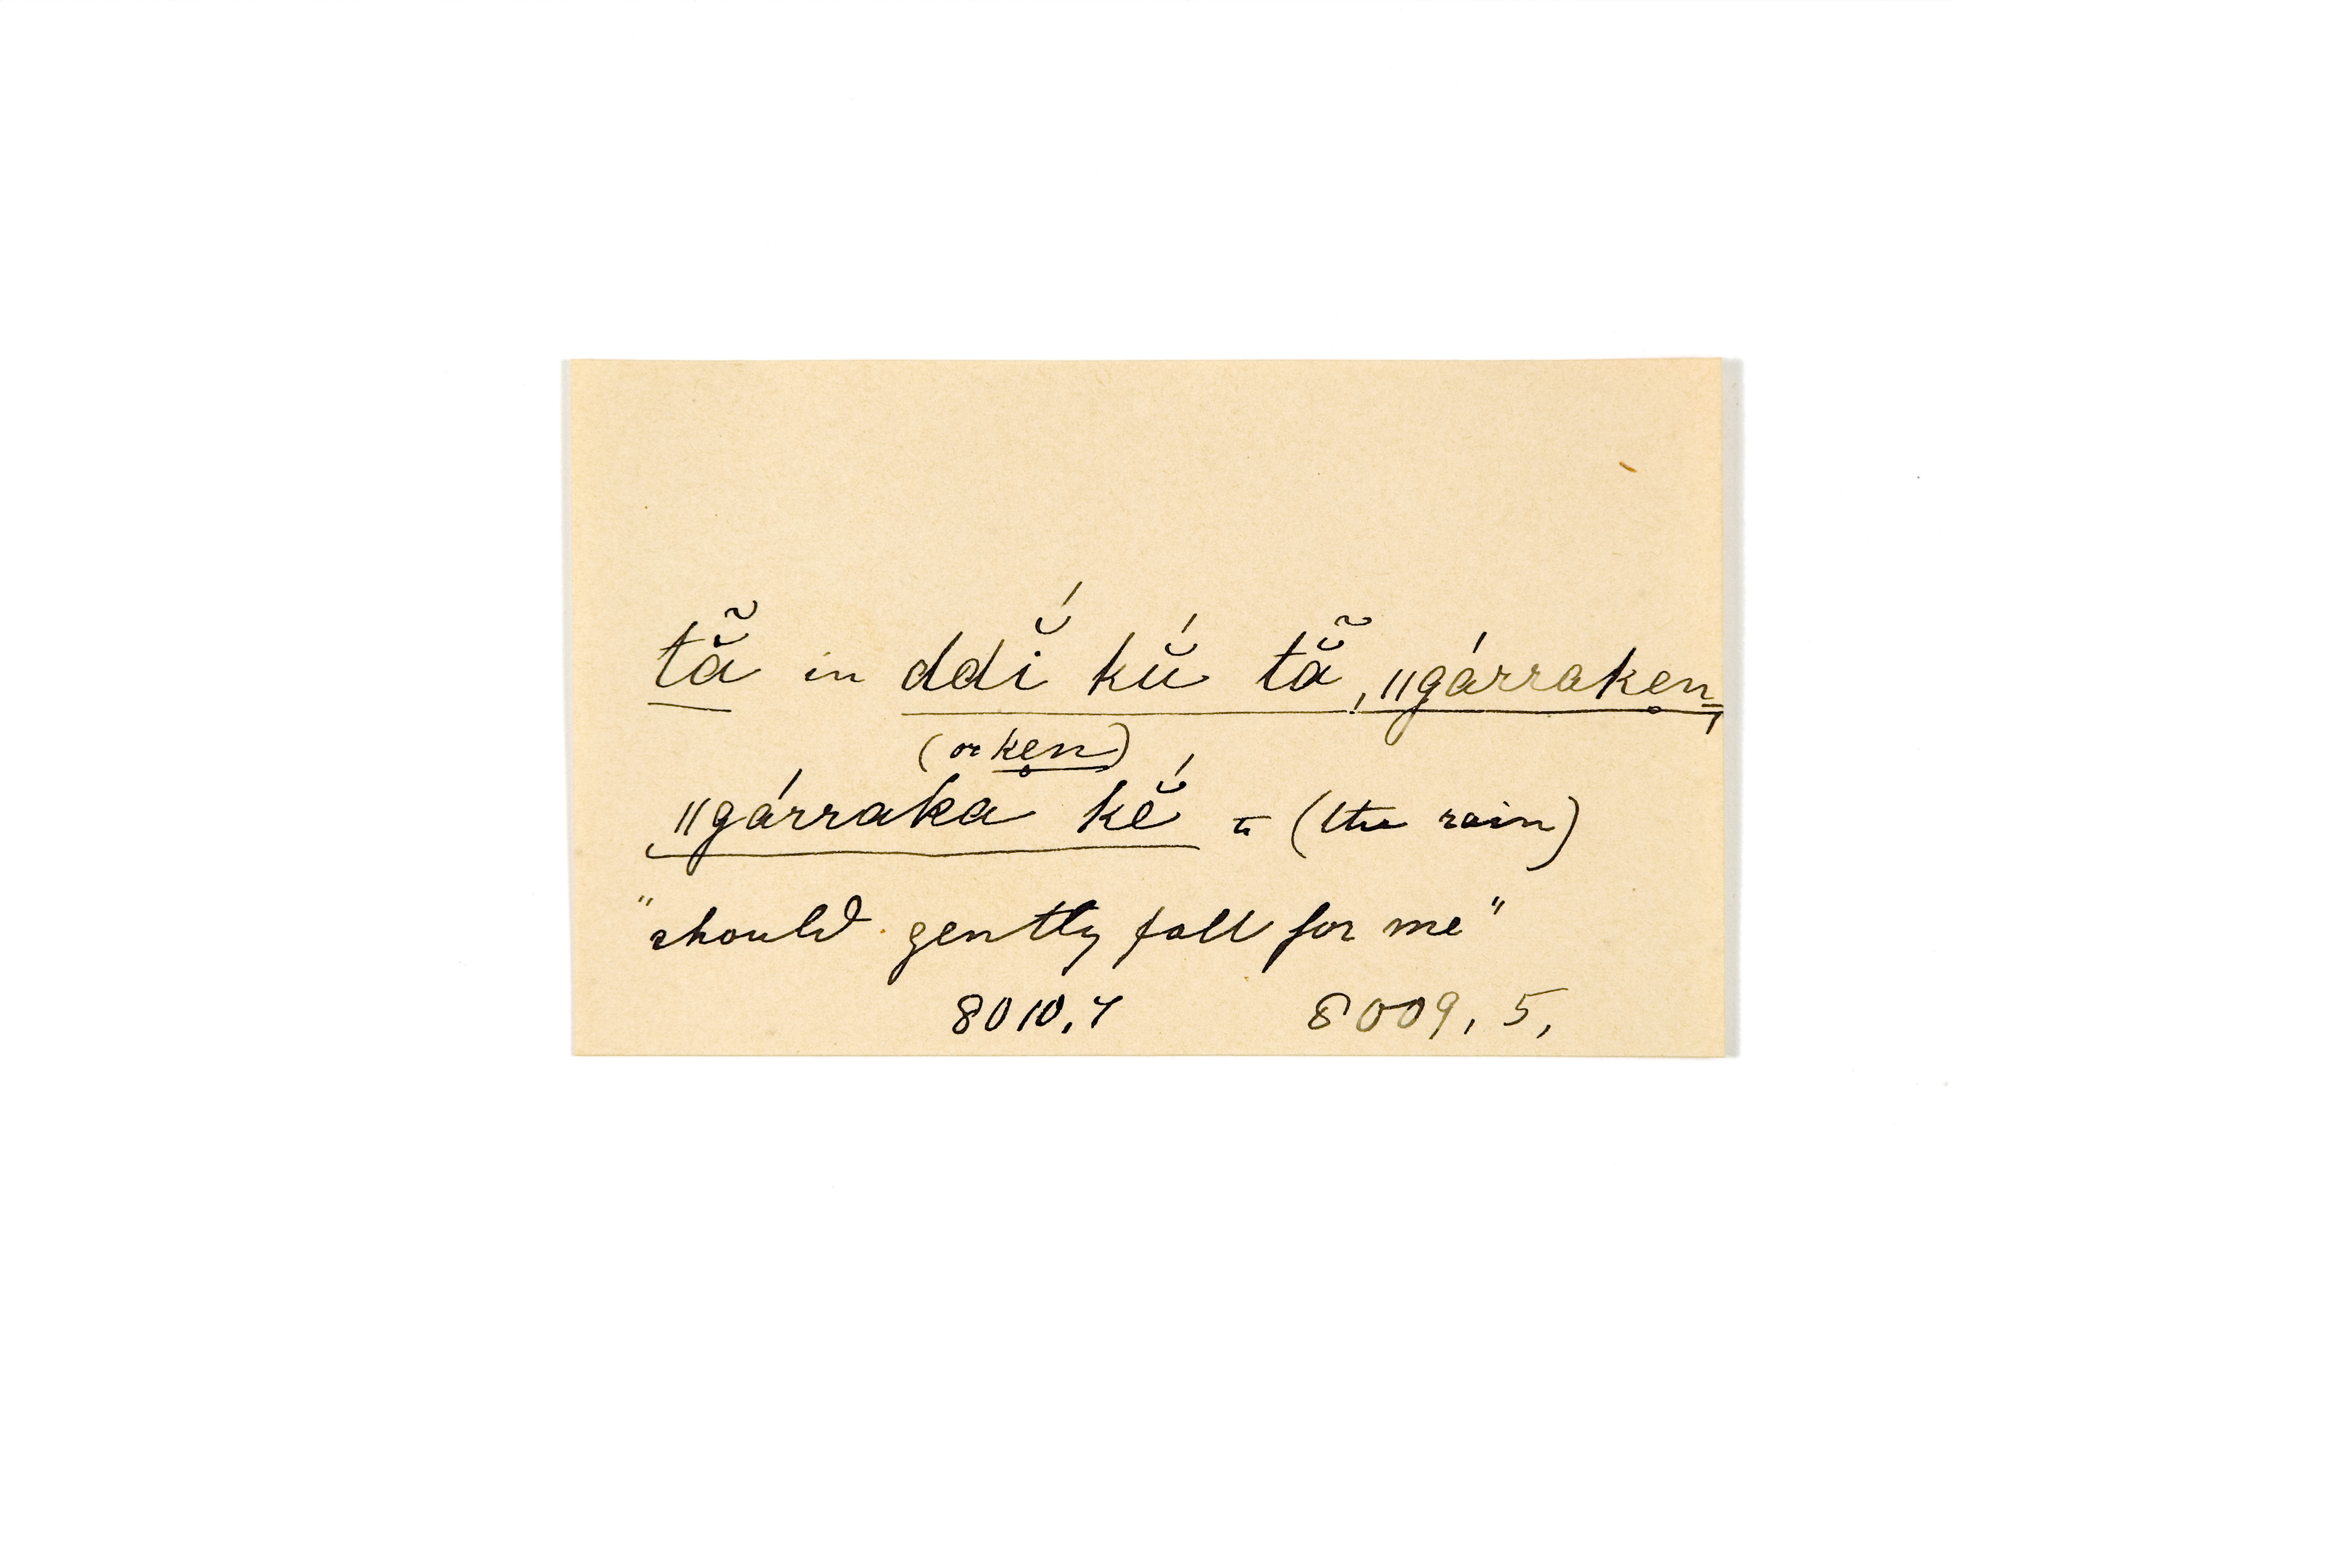 tẵ in ddĭ́ kŭ́ tẵ, ‖gárrake̥n,
(or ke̥n)
‖gárraka kĕ́ = (the rain)
"should gently fall for me"
8010,7 8009, 5,